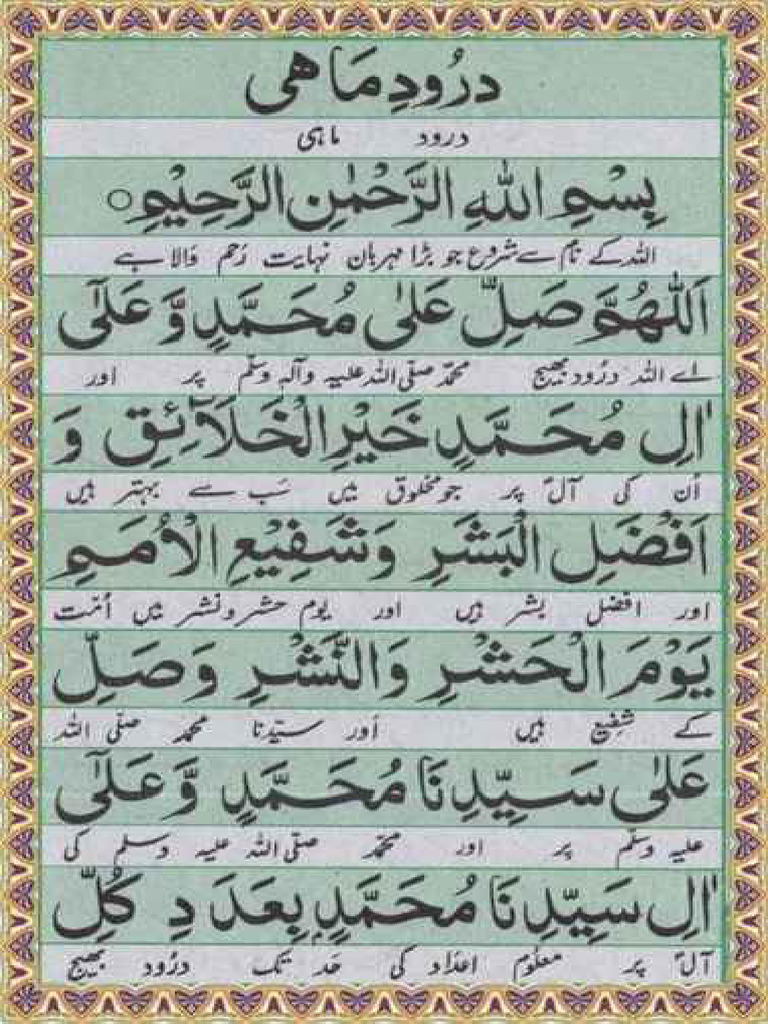 درُودِ مَاهی
درود ماہی
بِسْمِ اللهِ الرَّحْمٰنِ الرَّحِيْمِ○
اللہ کے نام سے شروع جو بڑا مہربان نہایت رَحم وَالا ہے
اَللّٰهُمَّ صَلِّ عَلٰى مُحَمَّدٍ وَّ عَلٰٓى
اے اللہ درُود بھیج محمّد صلّی اللہ علیہ وآلہٖ وسلّم پر اور
اٰلِ مُحَمَّدٍ خَيْرِ الْخَلَآئِقِ وَ
اُن کی آلؑ پر جو مخلوق میں سَب سے بہتر ہیں
اَفْضَلِ الْبَشَرِ وَشَفِيْعِ الْاُمَمِ
اور افضل بشر ہیں اور یوم حشر و نشر میں اُمّت
يَوْمَ الْحَشْرِ وَالنَّشْرِ وَصَلِّ
کے شفیع ہیں اَور سیّدنا محمّد صلّی اللہ
عَلٰى سَيِّدِنَا مُحَمَّدٍ وَّعَلٰٓى
علیہ وسلّم پر اور محمّد صلّی اللہ علیہ وسلم کی
اٰلِ سَيِّدِنَا مُحَمَّدٍ بِعَدَدِ كُلِّ
آلؑ پر معلُوم اعدَاد کی حَد تک درُود بھیج